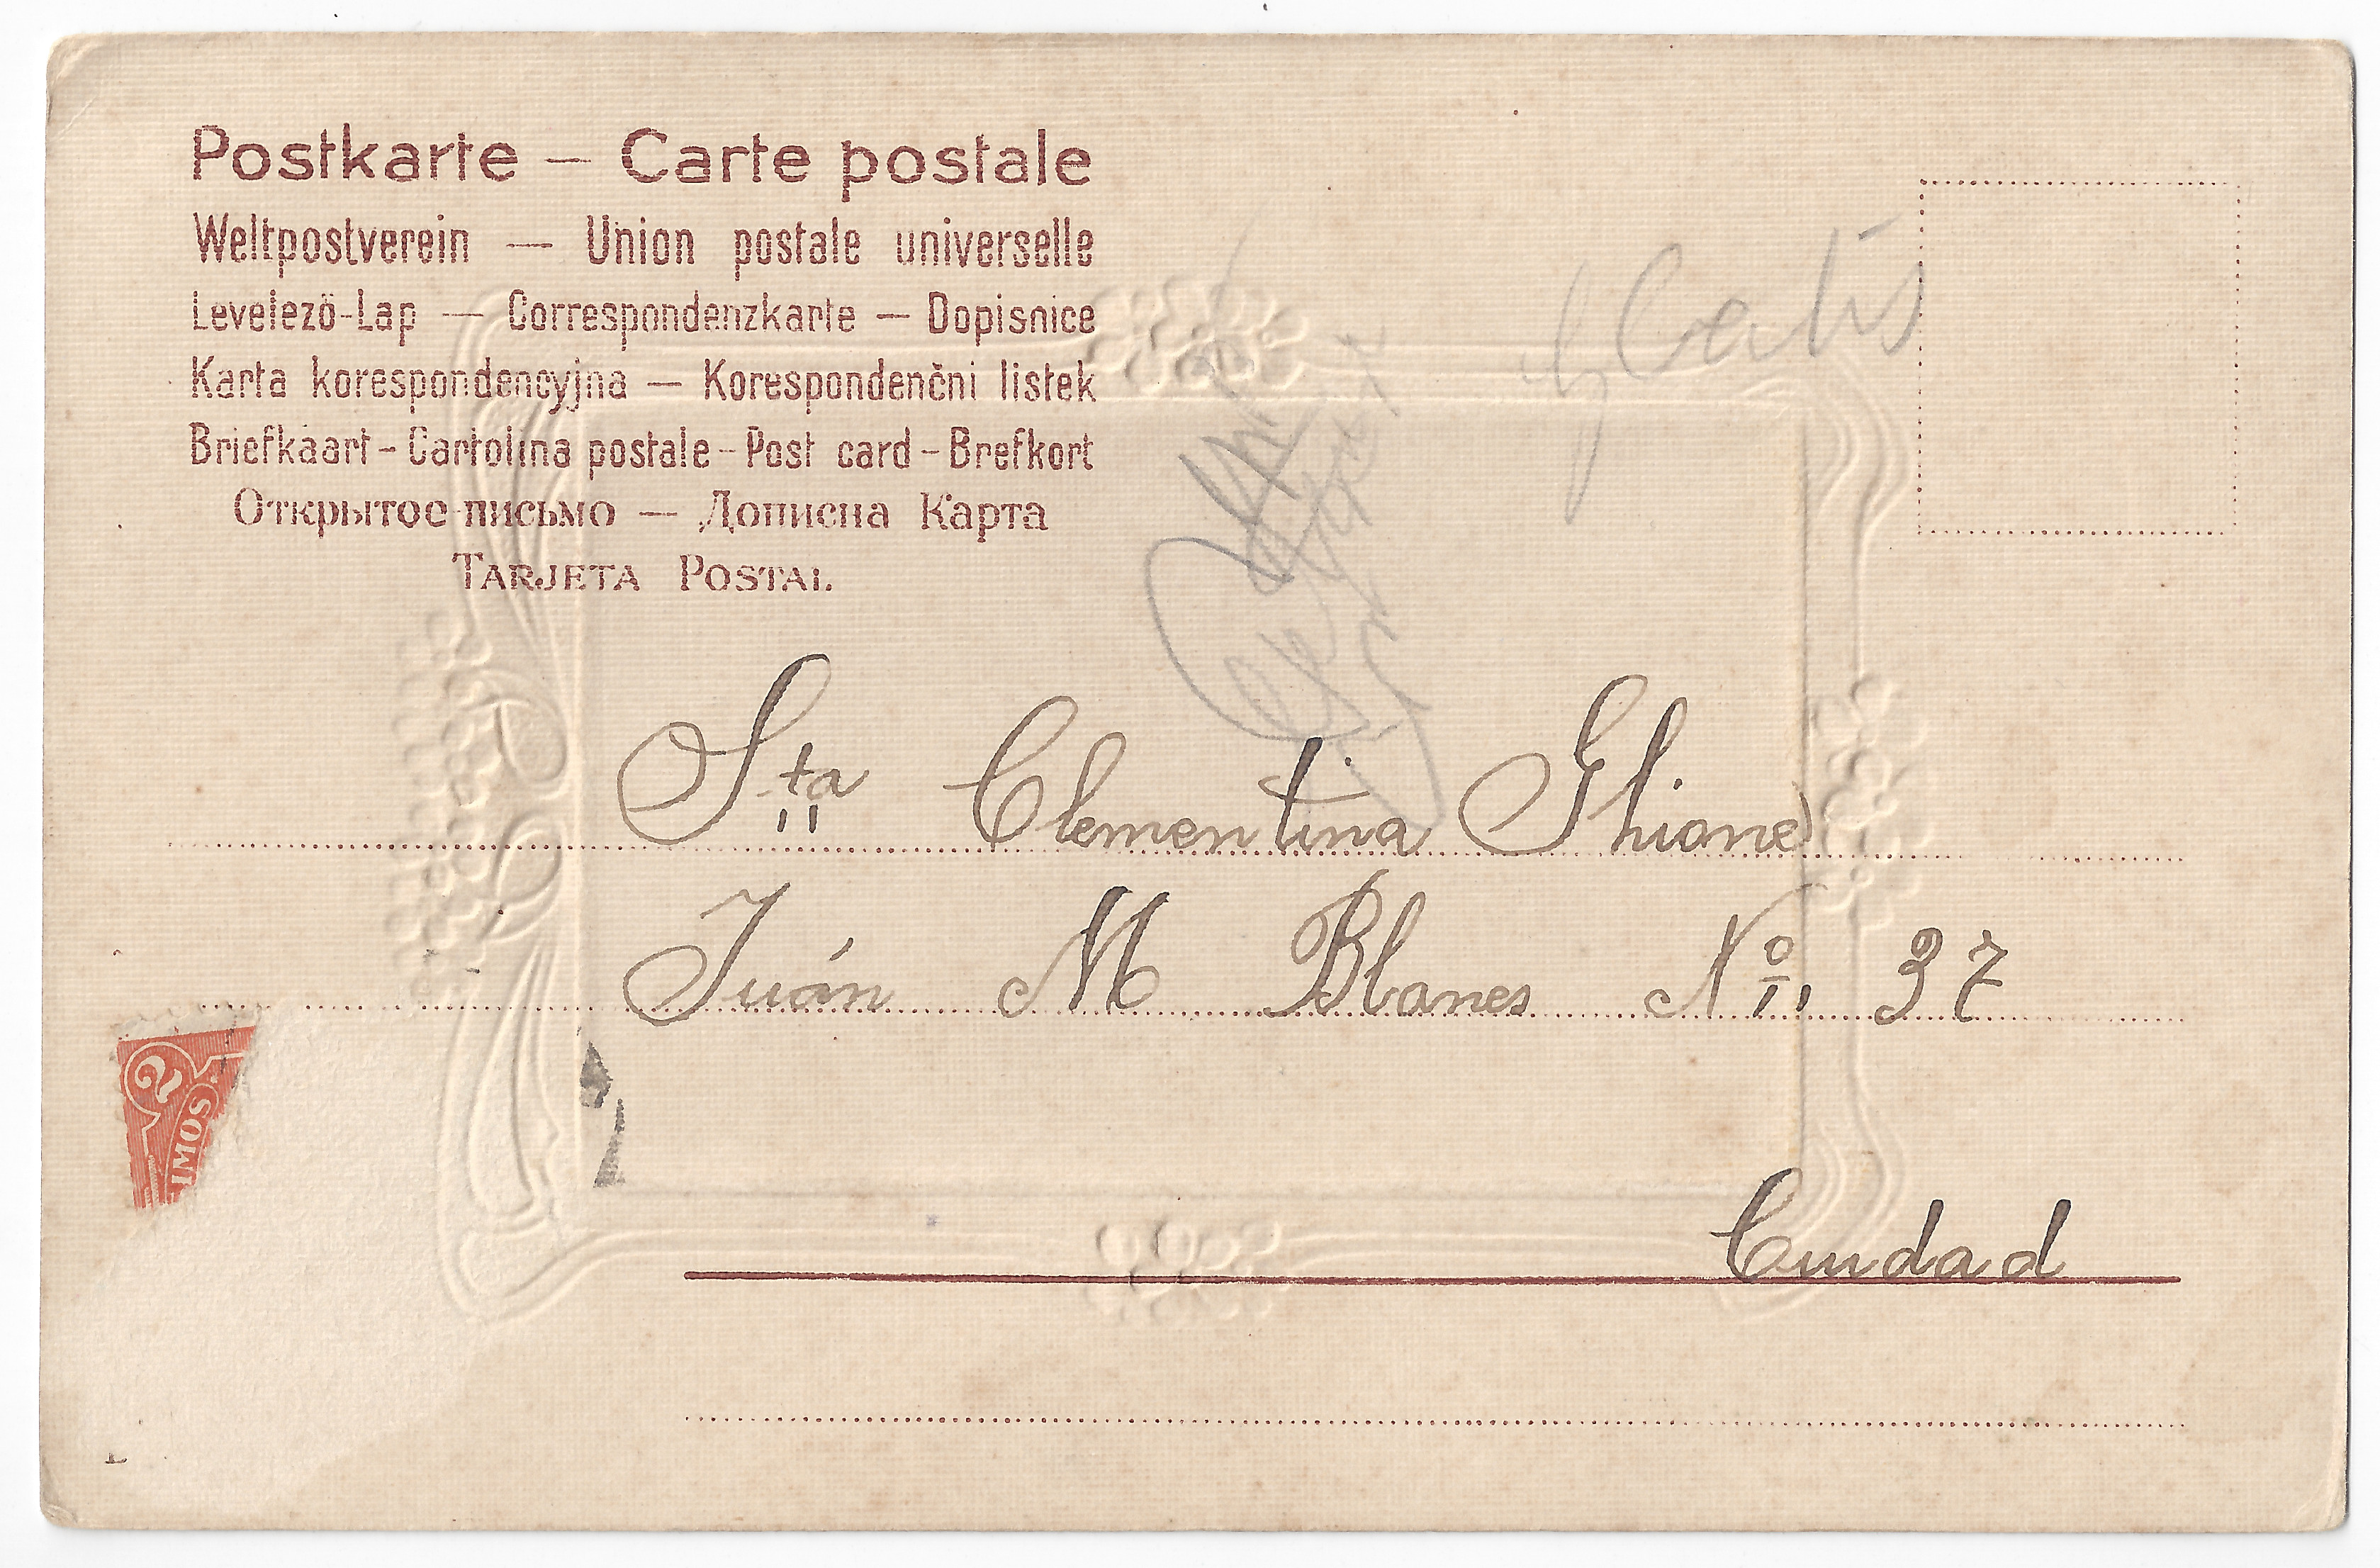 Postkarte — Carte postale
Weltpostverein — Union postale universelle
Levelező-Lap — Correspondenzkarte — Dopisnice
Karta korespondencyjna — Korespondenční listek
Briefkaart - Cartolina postale - Post card - Brefkort
Открытое письмо — Дописна Карта
TARJETA POSTAL
Sta Clementina Ghione
Juán M Blanes No 37
2
IMOS
Ciudad